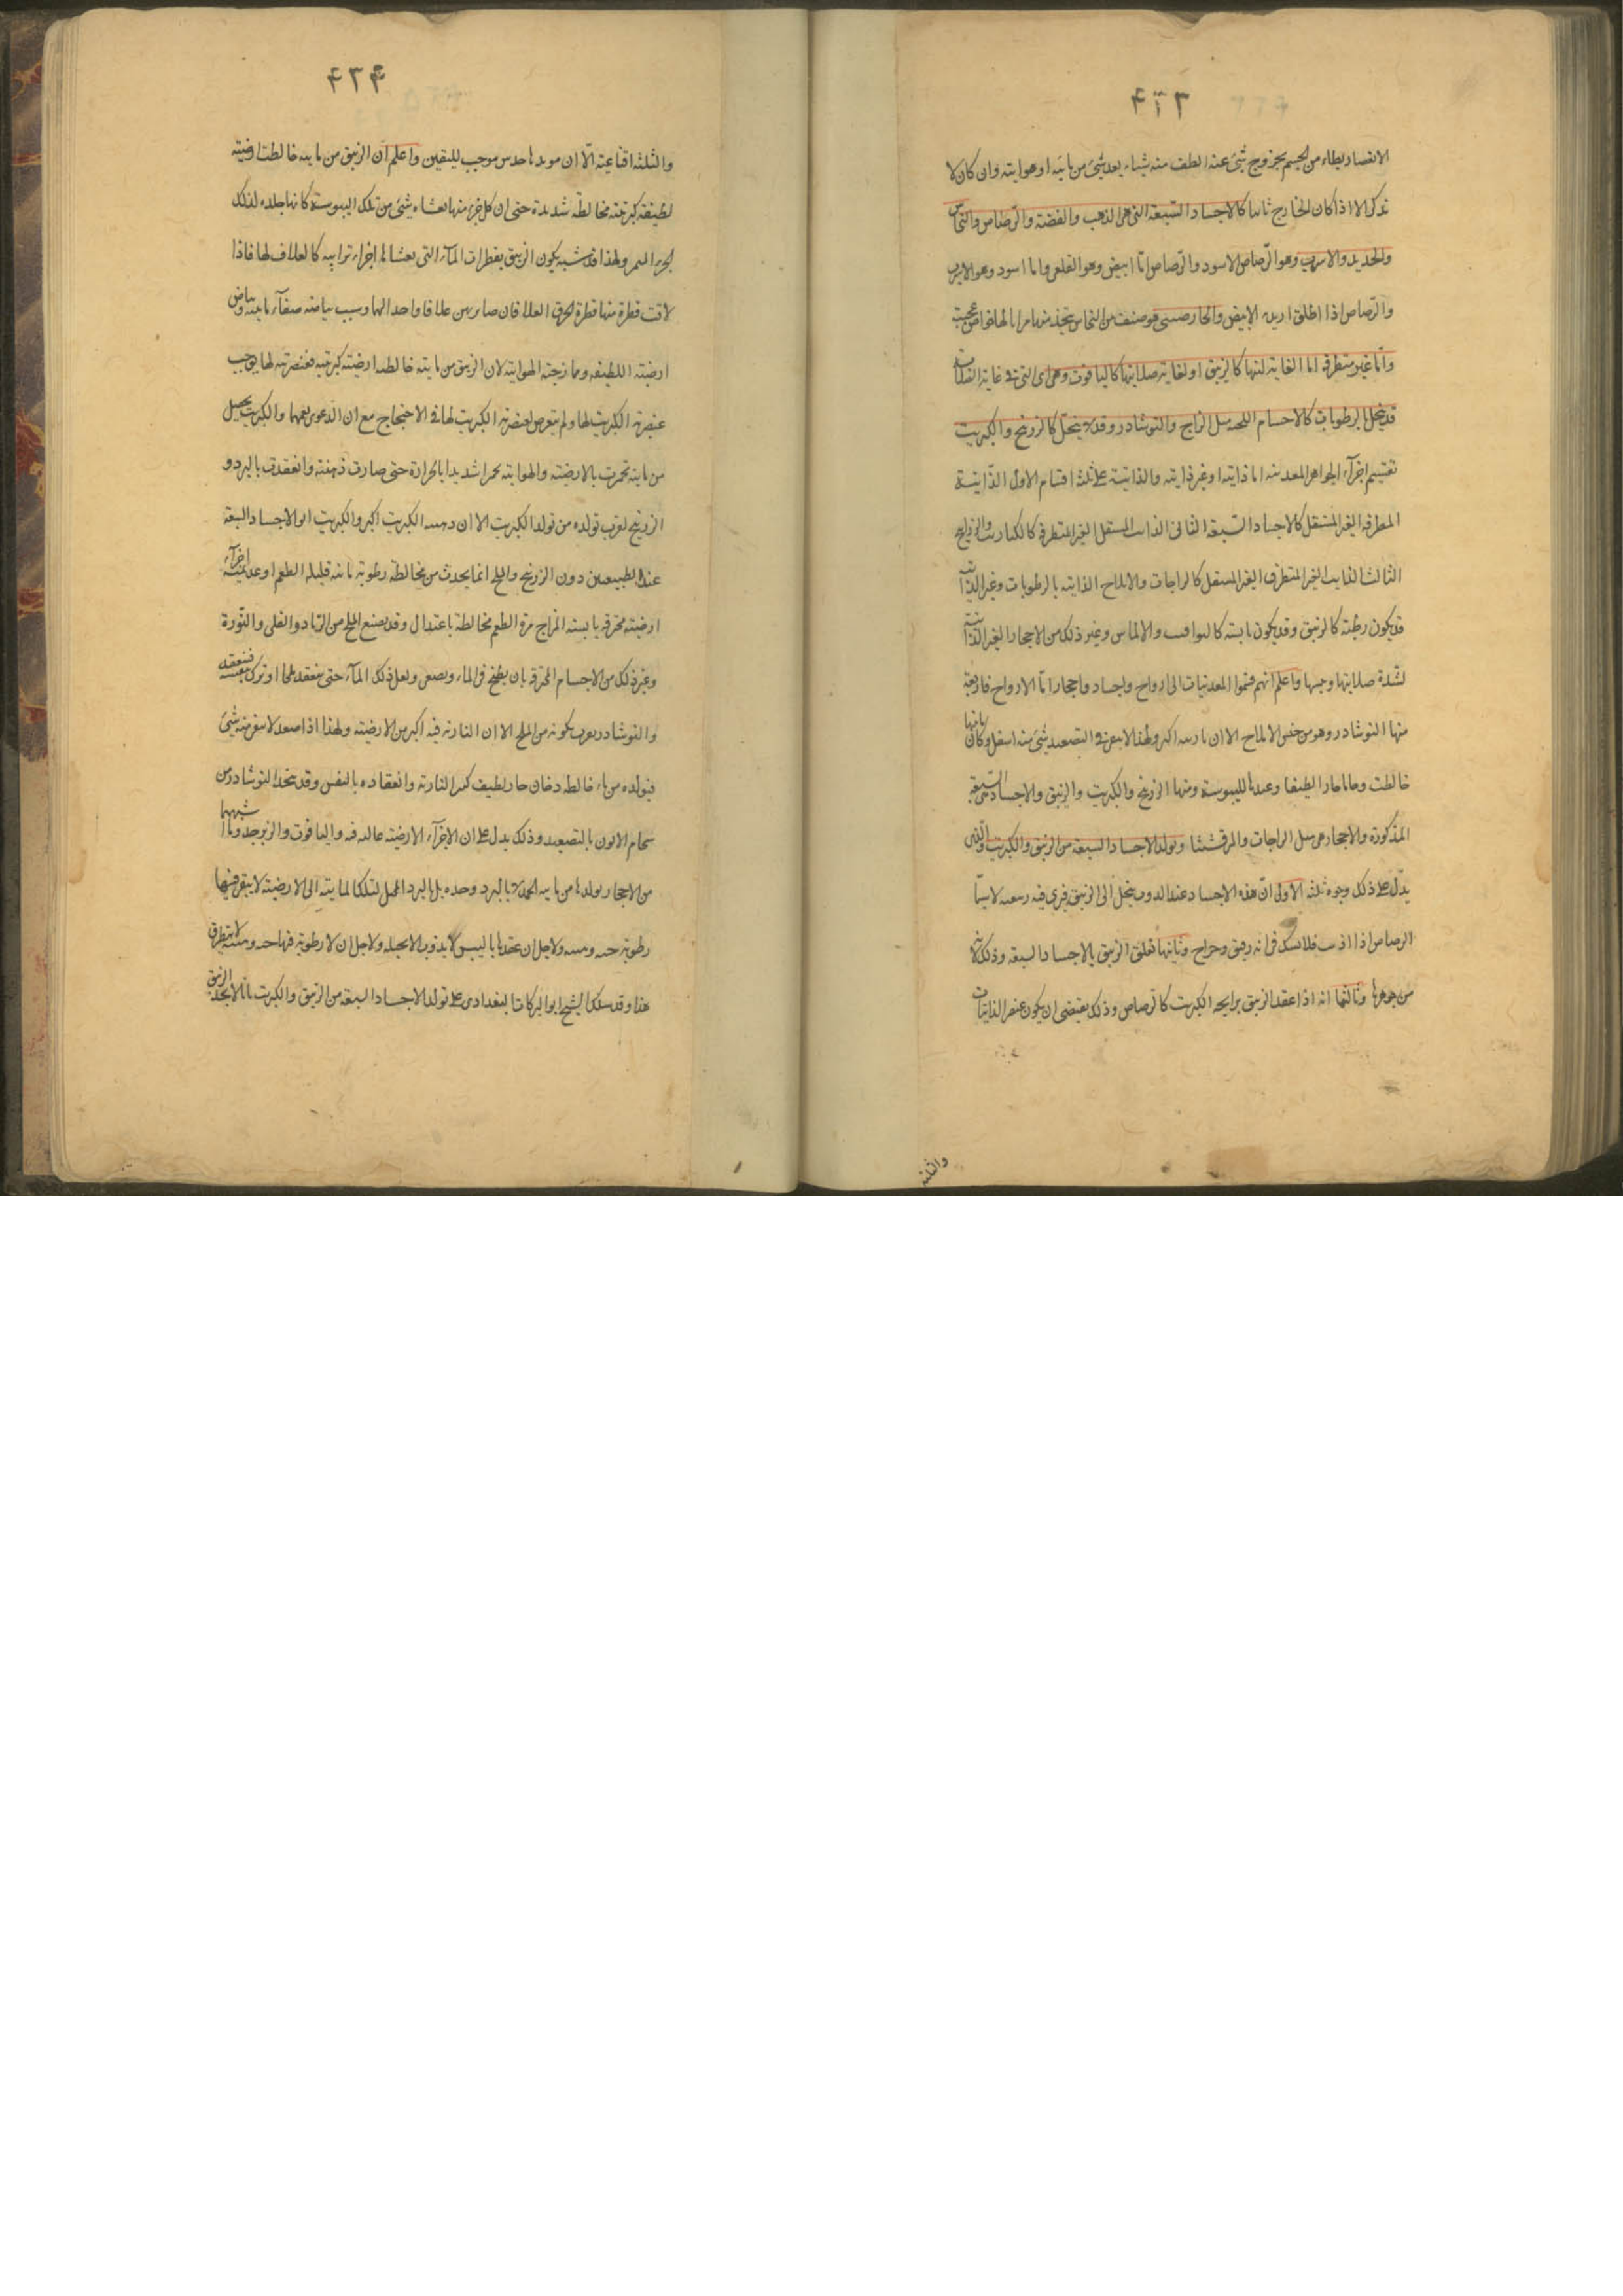 ۴۳۳
الانفصاد بطاء من الجسم بخروج شئ عنه الطف منه شيئا بعد شئ من مائية او هوايته وان كان لا
تدرك الا اذا كان الخارج كالاجساد السبعة التى هى الذهب والفضة والرصاص والنحاس
والحديد والاسرب وهو الرصاص الاسود والرصاص اما ابيض وهو القلعى واما اسود وهو الاسرب
والرصاص اذا اطلق اريد به الابيض والخارصينى هو صنف من النحاس يتخذ منها مرايا لها خواص عجيبة
واما غير متطرقة اما لغاية لينها كالزيبق او لغاية صلابتها كالياقوت وهى اى التى فى غاية
قد ينحل بالرطوبات كالاجسام الملحية مثل الزاج والنوشادر وقد لا ينحل كالزرنيخ والكبريت
تقسيم اخر الجواهر المعدنية اما ذايبة او غير ذايبة والذايبة على ثلث اقسام الاول الذايبة
المتطرقة الغير المشتعل كالاجساد السبعة الثانى الذايب المشتعل الغير المتطرق كالكباريت والزرانيخ
الثالث الذايب الغير المتطرق الغير المشتعل كالزاجات والاملاح الذايبة بالرطوبات وغير الذايبة
قد يكون رطبة كالزيبق وقد يكون يابسة كاليواقيت والالماس وغير ذلك من الاحجار الغير الذايبة
لشدة صلابتها ويبسها واعلم انهم قسموا المعدنيات الى ارواح واجساد واحجار اما الارواح فاربعة
منها النوشادر وهو من جنس الاملاح الا ان ناريته اكثر ولهذا لا يبقى فى التصعيد شئ منه اسفل وكان مائها
خالطت دخانا حارا لطيفا وعقدها اليبوسة ومنها الزرنيخ والكبريت والزيبق والاجساد هى السبعة
المذكورة والاحجار هى مثل الزاجات والمرقشيشا وتولد الاجساد السبعة من الزيبق والكبريت والذى
يدل على ذلك وجوه ثلثة الاول ان هذه الاجساد عند الذوب ينحل الى الزيبق فيرى فيه لا سيما
الرصاص اذا اذيب فلا يشك فى انه زيبق وثانيها تعلق الزيبق بالاجساد السبعة وذلك لانه
من جوهرها وثالثها انه اذا عقد الزيبق برايحة الكبريت كالرصاص وذلك يقتضى ان يكون عنصر الذايبات
والثلثة
۴۳۴
والثلثة اقناعية الا ان مويدها حدس موجب لليقين واعلم ان الزيبق من مائية خالطت ارضية
لطيفة كبريتية مخالطة شديدة حتى ان كل جزء منها يغشاه شئ من تلك اليبوسة كانها جلدة لذلك
الجزء ولهذا قد شبه تكون الزيبق بقطرات الماء التى يغشاها اجزاء ترابية كالغلاف لها فاذا
لاقت قطرة منها قطرة انخرق الغلافان صايرين غلافا واحدا لهما وسبب بياضه صفاء مائيته وبياض
ارضيته اللطيفة وممازجته الهوائية لان الزيبق من مائية خالطت ارضية كبريتية فعنصريته لها يوجب
عنصرية الكبريت لها ولم يتعرض لعنصرية الكبريت لها فى الاحتجاج مع ان الدعوى يعمهما والكبريت يحصل
من مائية تخمرت بالارضية والهوائية تخمرا شديدا بالحرارة حتى صارت دهنية وانعقدت بالبرد و
الزرنيخ يقرب تولده من تولد الكبريت الا ان دهنية الكبريت اكثر والكبريت ابو الاجساد السبعة
عند الطبيعيين دون الزرنيخ والملح انما يحدث من مخالطة رطوبة مائية قليلة الطعم او عديمته اجزاء
ارضية محترقة يابسة المزاج مرة الطعم مخالطة باعتدال وقد يصنع الملح من الرماد والقلى والنورة
وغير ذلك من الاجسام المحترقة بان يطبخ فى الماء ويصفى ويغلى ذلك الماء حتى ينعقد ملحا او ترك بنفسه فينعقد
والنوشادر يقرب تكونه من الملح الا ان النارية فيه اكثر من الارضية ولهذا اذا صعد لا يبقى منه شئ
فيتولده من ماء خالطه دخان حار لطيف كثير النارية وانعقاده باليبس وقد يتخذ النوشادر من
سخام الاتون بالتصعيد وذلك يدل على ان الاجزاء الارضية فيه والياقوت والزبرجد وما اشبههما
من الاحجار تولدها من مائية انجمدت لا بالبرد وحده بل بالبرد المحيل لتلك المائية الى الارضية لا يبقى فيها
رطوبة حية ولاجل ان عقدها باليبس لا يذوب الا بحيلة ولاجل ان لا رطوبة فيها حية لا يتطرق
هذا وقد سلك الشيخ ابو البركات البغدادى على تولد الاجساد السبعة من الزيبق والكبريت بانا لا نجد الزيبق